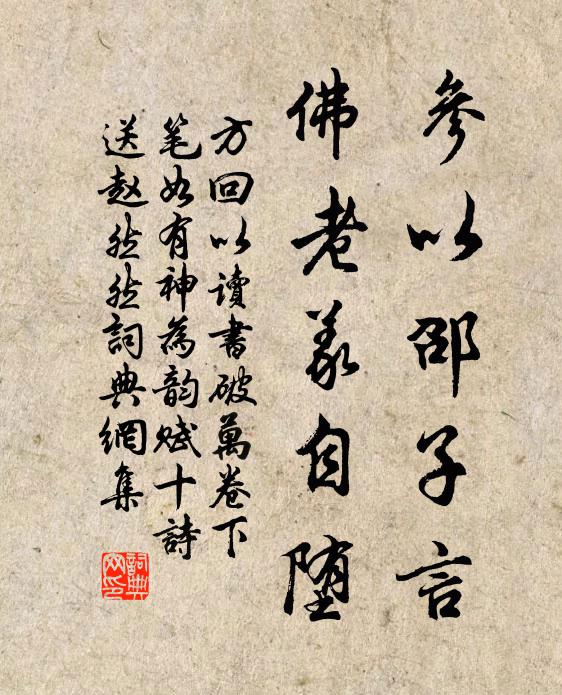 參以邵子言
佛老義自堕
方回以讀書破萬卷下
笔如有神為韵赋十詩
送赵然然詞典網集
詞典网印